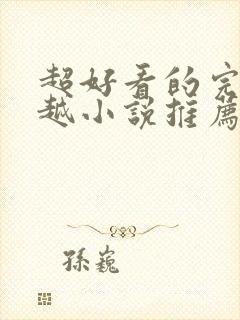 超好看的完
越小説推薦
孫巍